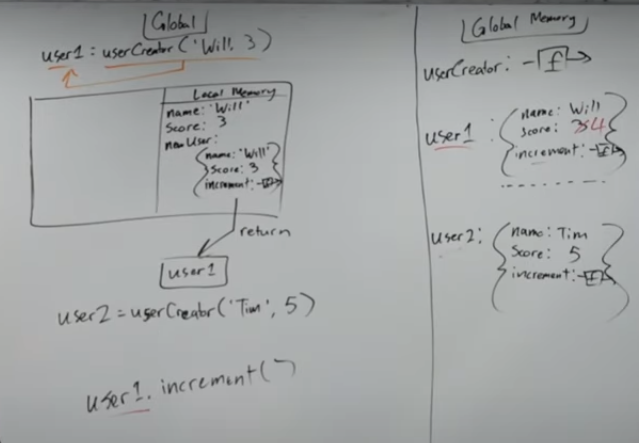 Global
user1 = userCreator('Will, 3)
Local Memory
name: 'Will'
Score: 3
newUser:
{name: 'Will'
Score: 3
increment: -[f]->}
return
user1
user2 = userCreator('Tim', 5)
user1.increment()
Global Memory
userCreator: -[f]->
user1: {name: Will
Score: 3 4
increment: -[f]->}
user2: {name: Tim
Score: 5
increment: -[f]->}